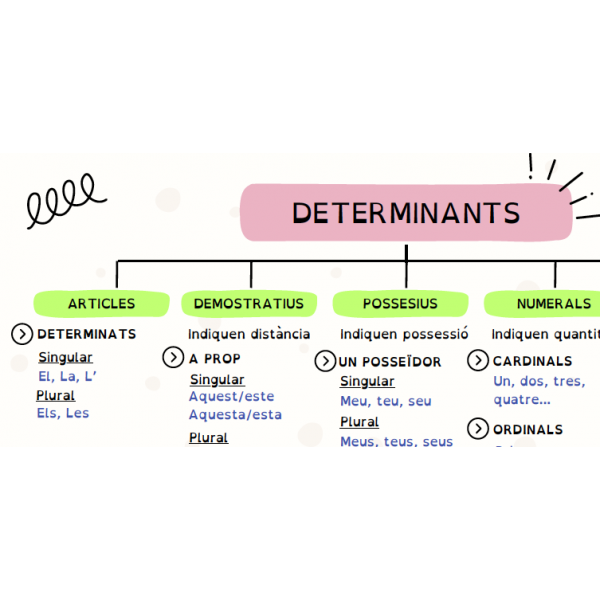 DETERMINANTS
ARTICLES
DETERMINATS
Singular
El, La, L’
Plural
Els, Les
DEMOSTRATIUS
Indiquen distància
A PROP
Singular
Aquest/este
Aquesta/esta
Plural
POSSESIUS
Indiquen possessió
UN POSSEÏDOR
Singular
Meu, teu, seu
Plural
Meus, teus, seus
NUMERALS
Indiquen
CARDINALS
Un, dos, tres,
quatre...
ORDINALS